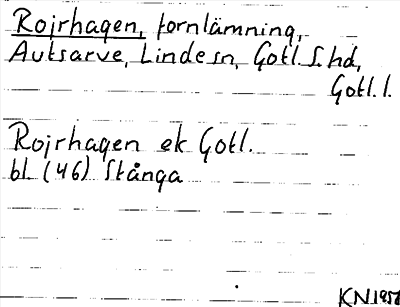 Rojrhagen, fornlämning,
Autsarve, Linde sn, Gotl. S. hd,
Gotl. l.
Rojrhagen ek Gotl.
bl. (46) Stånga
KN